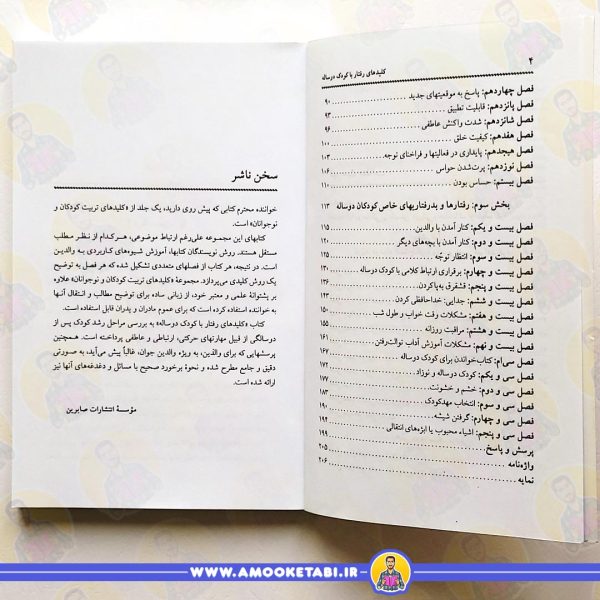 ۴
کلیدهای رفتار با کودک دوساله
فصل چهاردهم: پاسخ به موقعیتهای جدید ۹۰
فصل پانزدهم: قابلیت تطبیق ۹۳
فصل شانزدهم: شدت واکنش عاطفی ۹۶
فصل هفدهم: کیفیت خلق ۱۰۰
فصل هیجدهم: پایداری در فعالیتها و فراخنای توجه ۱۰۳
فصل نوزدهم: پرت‌شدن حواس ۱۰۶
فصل بیستم: حساس بودن ۱۱۰
بخش سوم: رفتارها و بدرفتاریهای خاص کودکان دوساله ۱۱۳
فصل بیست و یکم: کنار آمدن با والدین ۱۱۵
فصل بیست و دوم: کنار آمدن با بچه‌های دیگر ۱۲۰
فصل بیست و سوم: انتظار توجّه ۱۲۵
فصل بیست و چهارم: برقراری ارتباط کلامی با کودک دوساله ۱۳۰
فصل بیست و پنجم: قشقرق به‌پاکردن ۱۳۶
فصل بیست و ششم: جدایی: خداحافظی کردن ۱۴۳
فصل بیست و هفتم: مشکلات رفت خواب و طول شب ۱۵۰
فصل بیست و هشتم: مراقبت روزانه ۱۵۵
فصل بیست و نهم: مشکلات آموزش آداب توالت‌رفتن ۱۶۰
فصل سی‌ام: کتاب‌خواندن برای کودک دوساله ۱۷۲
فصل سی و یکم: کودک دوساله و نوزاد ۱۷۷
فصل سی و دوم: خشم و خشونت ۱۸۳
فصل سی و سوم: انتخاب مهدکودک ۱۹۰
فصل سی و چهارم: گرفتن شیشه ۱۹۴
فصل سی و پنجم: اشیاء محبوب یا ابژه‌های انتقالی ۱۹۹
پرسش و پاسخ ۲۰۵
واژه‌نامه
نمایه ۲۰۶
سخن ناشر
خواننده محترم کتابی که پیش روی دارید، یک جلد از «کلیدهای تربیت کودکان و
نوجوانان» است.
کتابهای این مجموعه علی‌رغم ارتباط موضوعی، هرکدام از نظر مطلب
مستقل هستند. روش نویسندگان کتابها، آموزش شیوه‌های کاربردی به والدین
است. در نتیجه، هر کتاب از فصلهای متعددی تشکیل شده که هر فصل به توضیح
یک روش کلیدی می‌پردازد. مجموعهٔ «کلیدهای تربیت کودکان و نوجوانان» علاوه
بر پشتوانهٔ علمی و معتبر خود، از زبانی ساده برای توضیح مطالب و انتقال آنها به
خواننده استفاده کرده است که برای عموم مادران و پدران قابل استفاده است.
کتاب «کلیدهای رفتار با کودک دوساله» به بررسی مراحل رشد کودک پس از
دوسالگی از قبیل مهارتهای حرکتی، ارتباطی و عاطفی پرداخته است. همچنین
پرسشهایی که برای والدین، به ویژه والدین جوان، غالباً پیش می‌آید، به صورتی
دقیق و جامع مطرح شده و نحوهٔ برخورد صحیح با مسائل و دغدغه‌های آنها نیز
ارائه شده است.
مؤسسهٔ انتشارات صابرین
WWW.AMOOKETABI.IR